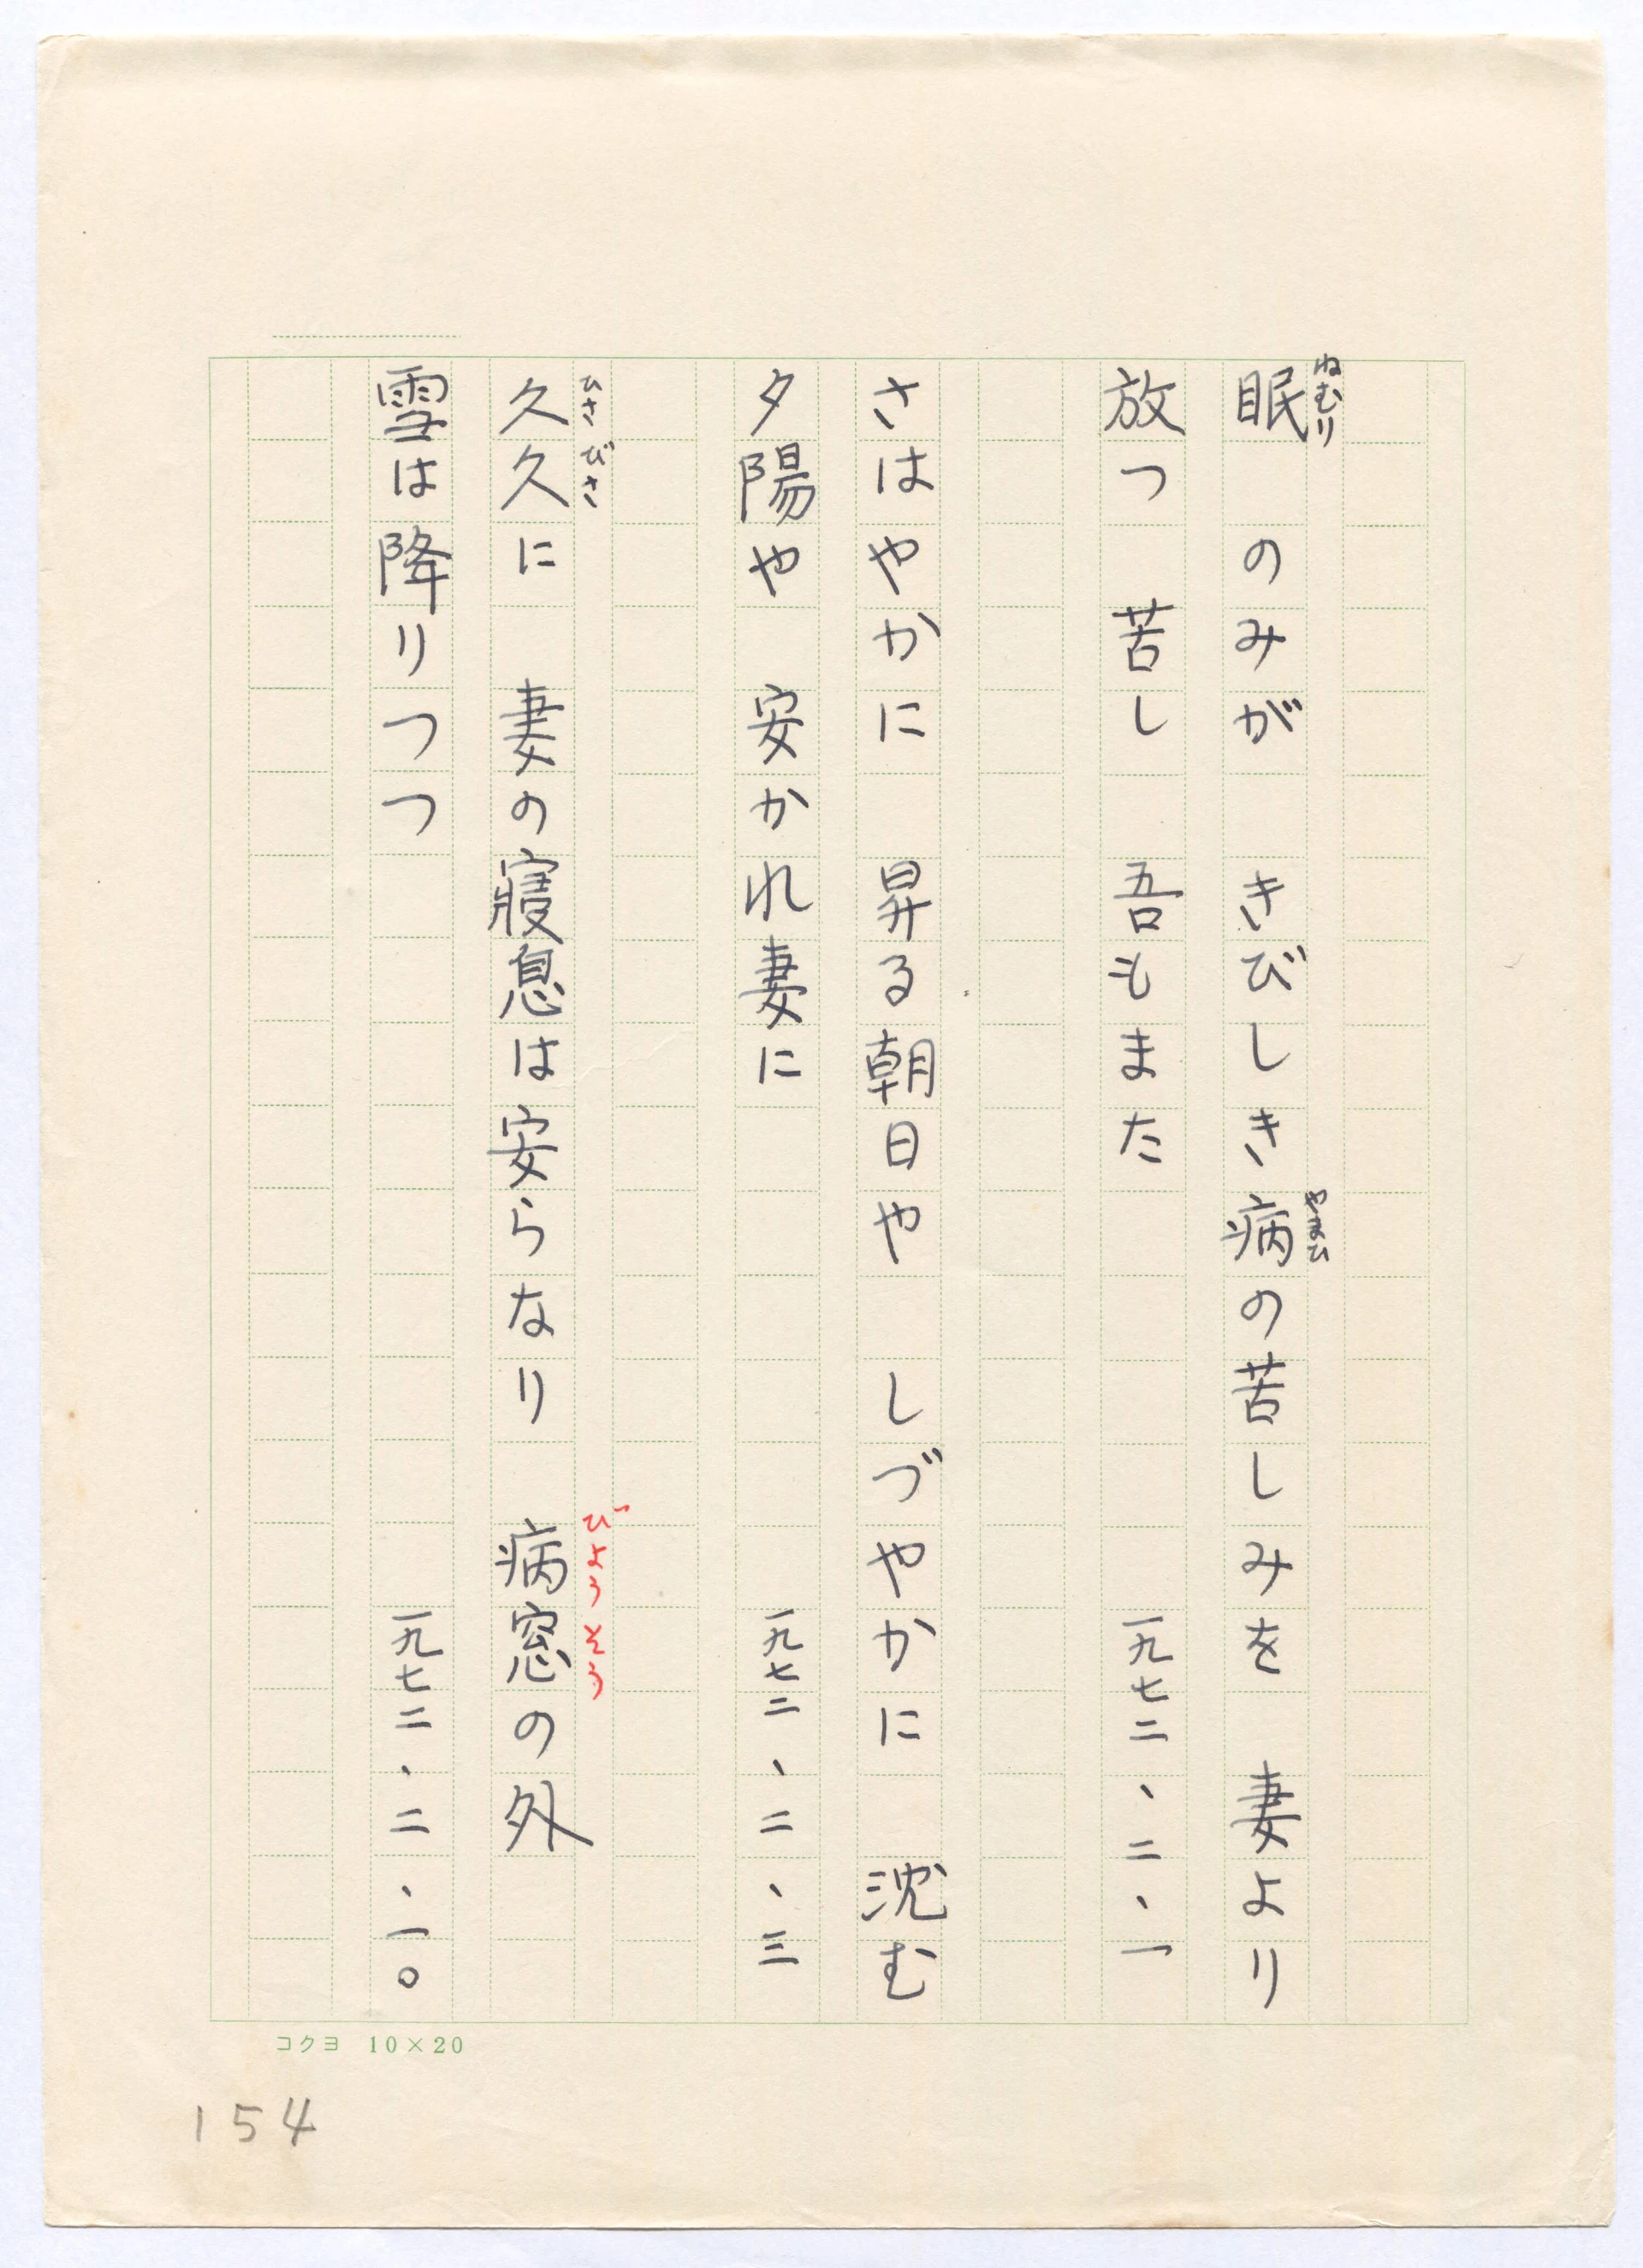 眠 のみが　きびしき病の苦しみを　妻より
ねむり
やまひ
放つ　苦し　吾もまた　一九七二、二、一
さはやかに　昇る朝日や　しづやかに　沈む
夕陽や　安かれ妻に　一九七二、二、三
久久に　妻の寝息は安らなり　病窓の外
ひさびさ
びようそう
雪は降りつつ　一九七二、二、一〇
コクヨ 10×20
154